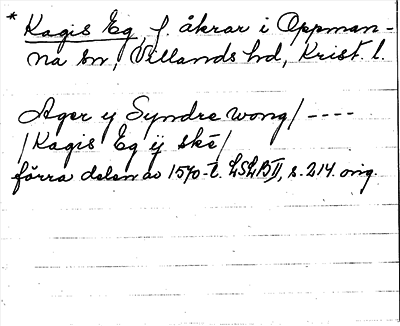 * Kagis Eg, f. åkrar i Oppman-
na sn, Villands hd, Krist. l.
Ager y Syndre wong/ ----
/Kagis Eg ij skē/
förra delen av 1570-t. LSLB II, s. 214. orig.